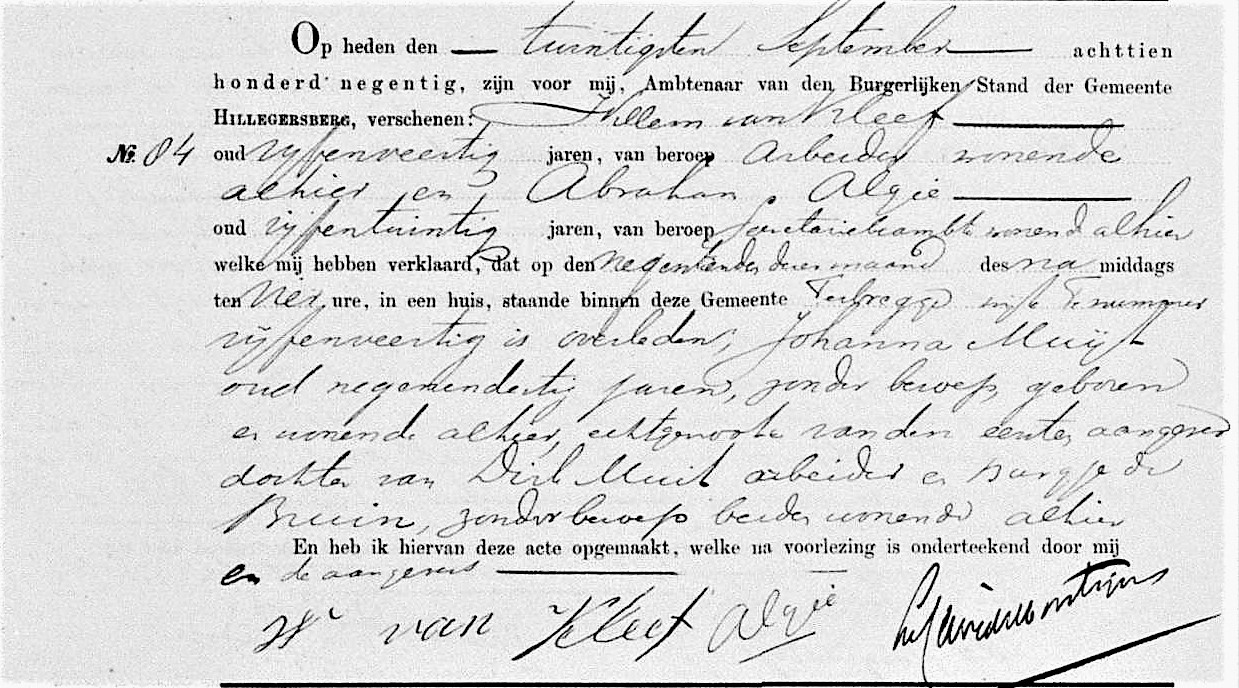 Op heden den twintigsten September achttien
honderd negentig, zijn voor mij, Ambtenaar van den Burgerlijken Stand der Gemeente
HILLEGERSBERG, verschenen: Willem van Kleef
No. 84 oud vijfenveertig jaren, van beroep arbeider wonende
alhier en Abraham Algie
oud vijfentwintig jaren, van beroep secretarieambte wonend alhier
welke mij hebben verklaard, dat op den negentienden dezer maand des na middags
ten vier ure, in een huis, staande binnen deze Gemeente Terbregge wijk nummer
vijfenveertig is overleden, Johanna Muijt
oud negenendertig jaren, zonder beroep, geboren
en wonende alhier, echtgenoote van den eersten aangever
dochter van Dirk Muit arbeider en de
Bruin, zonder beroep beiden wonende alhier
En heb ik hiervan deze acte opgemaakt, welke na voorlezing is onderteekend door mij
en de aangevers
W van Kleef Algie